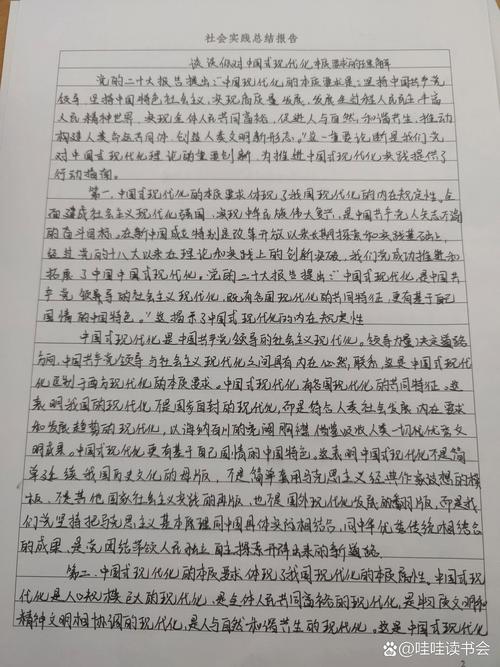 社会实践总结报告
谈谈你对中国式现代化本质要求的理解
党的二十大报告提出:"中国式现代化的本质要求是:坚持中国共产党
领导,坚持中国特色社会主义,实现高质量发展,发展全过程人民民主,丰富
人民精神世界,实现全体人民共同富裕,促进人与自然和谐共生,推动
构建人类命运共同体,创造人类文明新形态。"这一重要论断是我们党
对中国式现代化理论的重要创新,为推进中国式现代化实践提供了
行动指南。
第一,中国式现代化的本质要求体现了我国现代化的内在规定性。全
面建成社会主义现代化强国、实现中华民族伟大复兴,是中国共产党人矢志不渝
的奋斗目标。在新中国成立特别是改革开放以来长期探索和实践基础上,
经过党的十八大以来在理论和实践上的创新突破,我们党成功推进和
拓展了中国中国式现代化。党的二十大报告提出:"中国式现代化,是中国共
产党领导的社会主义现代化,既有各国现代化的共同特征,更有基于自己
国情的中国特色。"这揭示了中国式现代化的内在规定性
中国式现代化是中国共产党领导的社会主义现代化。领导力量决定道路
方向,中国共产党领导与社会主义现代化之间具有内在必然联系,这是中国式现代
化区别于西方现代化的本质要求。中国式现代化有各国现代化的共同特征。这
表明我国的现代化不是固步自封的现代化,而是符合人类社会发展内在要求
和发展趋势的现代化,以海纳百川的宽阔胸襟借鉴吸收人类一切优秀文
明成果。中国式现代化更有基于自己国情的中国特色。这表明中国式现代化不是简
单延续我国历史文化的母版,不是简单套用马克思主义经典作家设想的模
板,不是其他国家社会主义实践的再版,也不是国外现代化发展的翻版,而是我
们党坚持把马克思主义基本原理同中国具体实际相结合、同中华优秀传统相结合
的成果,是党团结带领人民独立自主探索开辟出来的新道路。
第二,中国式现代化的本质要求体现了我国现代化的本质属性。中国式现
代化是人口规模巨大的现代化,是全体人民共同富裕的现代化,是物质文明和
精神文明相协调的现代化,是人与自然和谐共生的现代化。这是中国式现代
2
@哇哇读书会